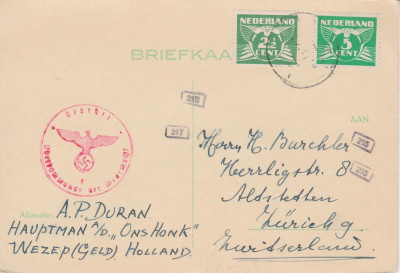 BRIEFKAA
NEDERLAND
2½
CENT
NEDERLAND
5
CENT
AAN
217
Geprüft
Oberkommando der Wehrmacht
Herrn H. Burchler
Herrligstr. 8
Altstetten
Zürich 9
Zwitserland.
Afzender:
A.P. DURAN
HAUPTMAN a/b „ONS HONK"
WEZEP (GELD) HOLLAND.